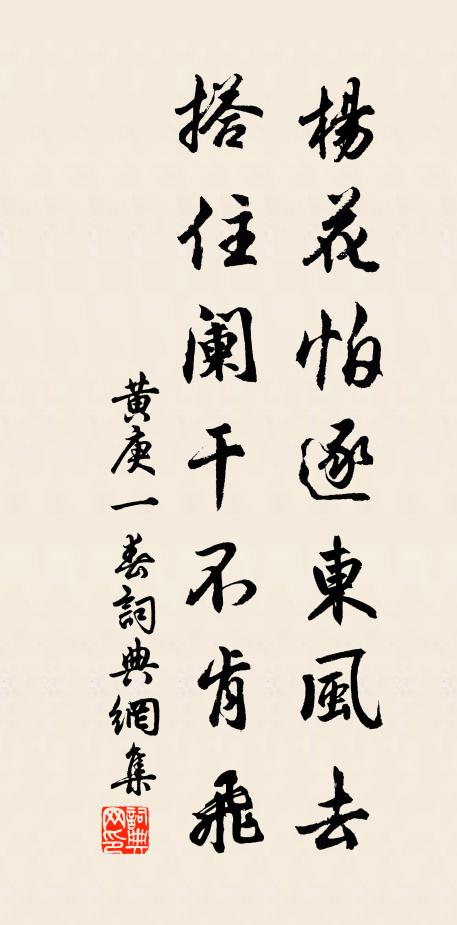 楊花怕逐東風去
搭住闌干不肯飛
黃庚一春詞典網集
詞典网印